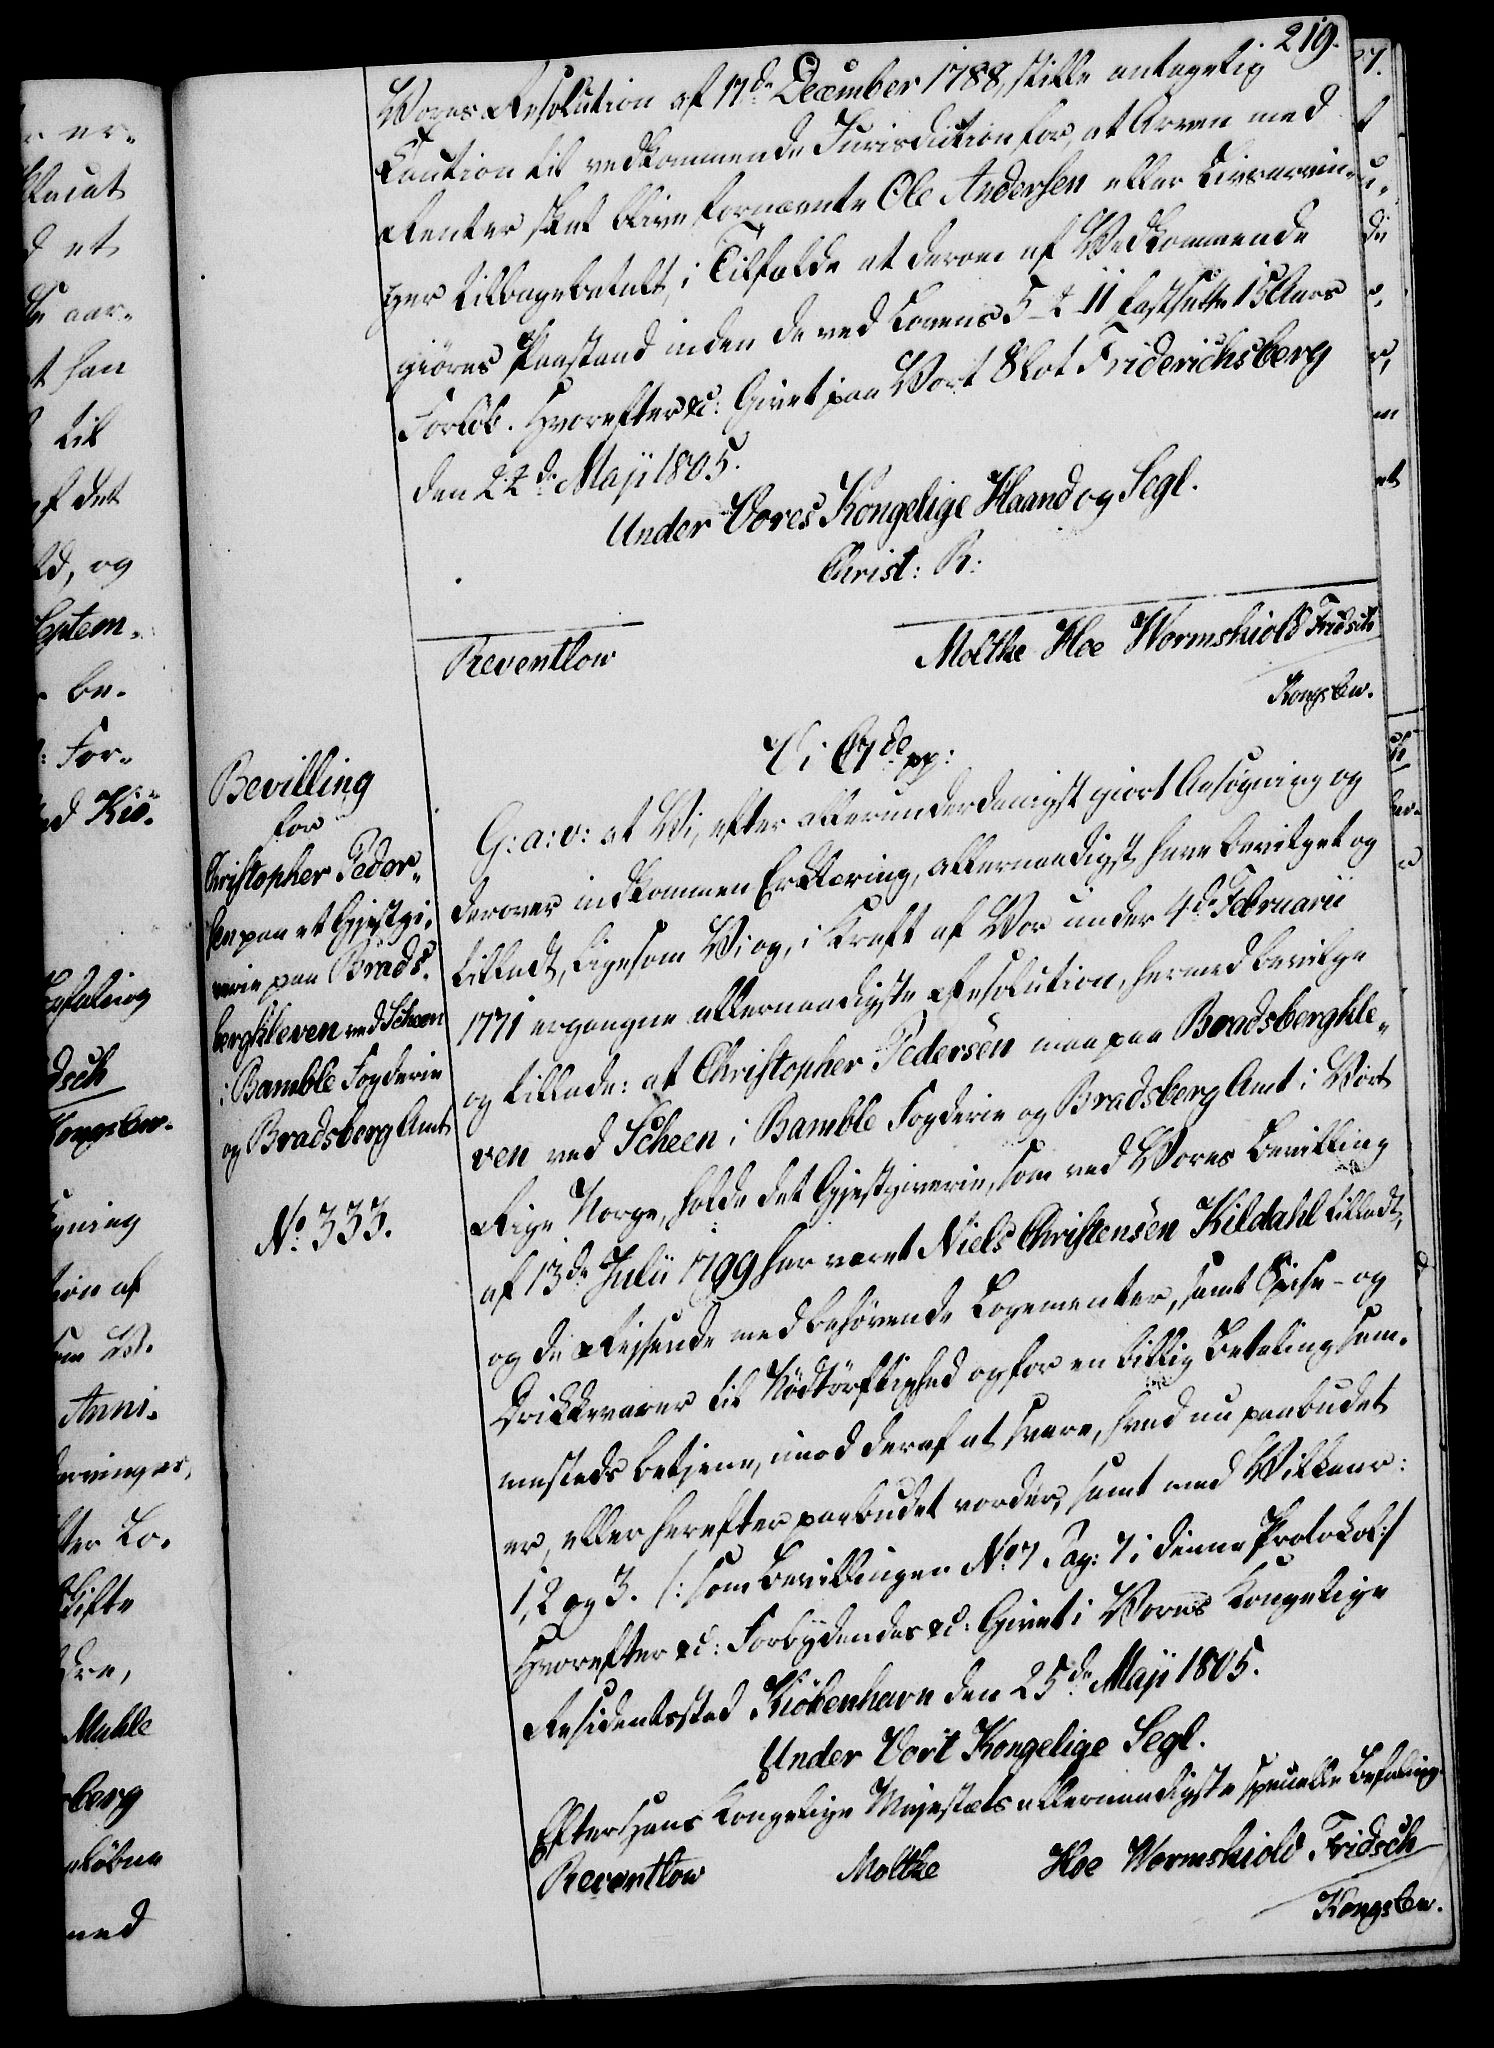 219.
Vores Resolution af 17de December 1788, stille antagelig
Caution til vedkommende Jurisdiction for, at Arven med
Renter skal blive fornævnte Ole Andersen eller Livsarvin-
ger tilbagebetalt, i Tilfælde at derom af Vedkommende
giøres Paastand inden de ved Lovens 5-2-11 fastsatte 15 Aars
Forløb. Hvorefter &c: Givet paa Vort Slot Friderichsberg
den 22de Maji 1805.
Under Vores Kongelige Haand og Segl.
Christ: R:
Reventlow Moltke Hoe Wormskiold Fridsch
Kongslew.
Bevilling
for
Christopher Peder-
sen paa et Gjestgi-
verie paa Brads-
bergkleven ved Scheen
i Bamble Fogderie
og Bradsberg Amt
No. 333.
Vi C 7de pp:
G: a: v: at Vi, efter allerunderdanigst giort Ansøgning og
derover indkommen Erklæring, allernaadigst have bevilget og
tilladt, ligesom Vi og, i Kraft af Vor under 4de Februarii
1771 ergangne allernaadigste Resolution, hermed bevilge
og tillade: at Christopher Pedersen maa paa Bradsbergkle-
ven ved Scheen i Bamble Fogderie og Bradsberg Amt i Vort
Rige Norge, holde det Gjestgiverie, som ved Vores Bevilling
af 13de Julii 1799 har været Niels Christensen Kildahl tilladt,
og de Reisende med behøvende Logementer, samt Spise- og
Drikkevarer til Nødtørftighed og for en billig Betaling sam-
mesteds betjene, imod deraf at svare, hvad nu paabudet
er, eller herefter paabudet vorder, samt med Vilkaar:
1, 2 og 3. /: som Bevillingen No 7 Pag: 7 i denne Protokol :/
Hvorefter &c: Forbydendes &c: Givet i Vores Kongelige
Residentsstad Kiøbenhavn den 25de Maji 1805.
Under Vort Kongelige Segl.
Efter Hans Kongelige Majestæts allernaadigste specielle Befaling
Reventlow Moltke Hoe Wormskiold Fridsch
Kongslew.